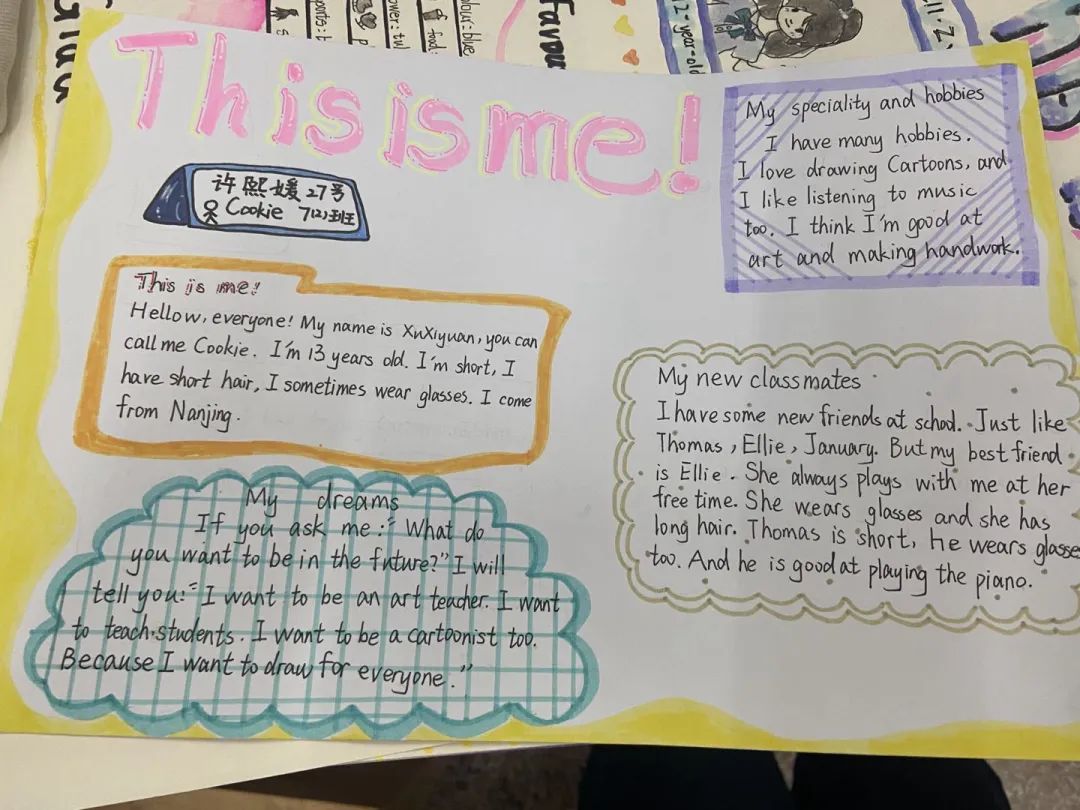 This is me!
许熙媛 27号
Cookie 7(2)班
This is me!
Hellow, everyone! My name is XuXiyuan, you can
call me Cookie. I'm 13 years old. I'm short, I
have short hair, I sometimes wear glasses. I come
from Nanjing.
My dreams
If you ask me: "What do
you want to be in the future?" I will
tell you: "I want to be an art teacher. I want
to teach students. I want to be a cartoonist too.
Because I want to draw for everyone."
My speciality and hobbies
I have many hobbies.
I love drawing Cartoons, and
I like listening to music
too. I think I'm good at
art and making handwok.
My new classmates
I have some new friends at school. Just like
Thomas, Ellie, January. But my best friend
is Ellie. She always plays with me at her
free time. She wears glasses and she has
long hair. Thomas is short, he wears glasses
too. And he is good at playing the piano.
food:
blue
12-year-old